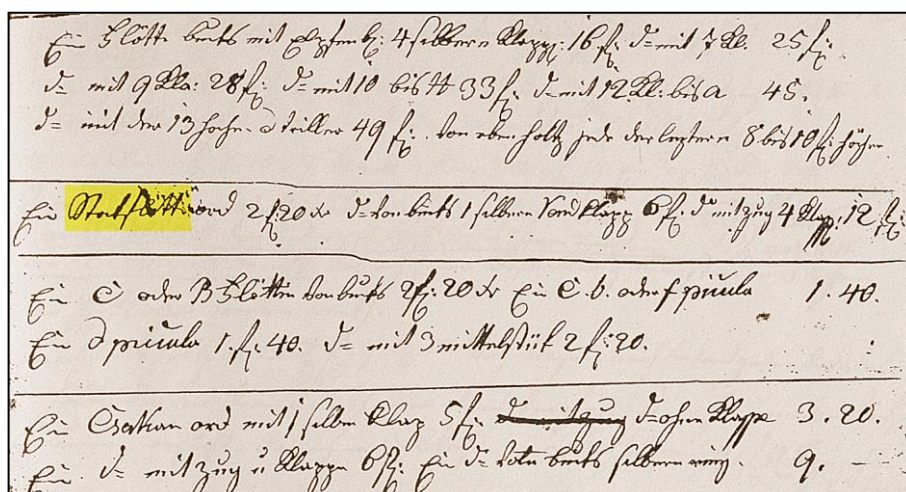 Ein Flötte buchs mit Elfenb: 4 silbern Klapp: 16 f: d= mit 7 Kl. 25 f:
d= mit 9 Kla: 28 f: d= mit 10 bis H 33 f: d= mit 12 Kl: bis a 45.
d= mit der 13 hohe d triller 49 f: Von eben holtz jede der leztern 8 bis 10 f: höher
Ein Stockflötte ord 2 f: 20 xr d= von buchs 1 silbern Klapp 6 f: d= mit zug 4 Klap: 12 f:
Ein C oder B Flötten von buchs 2 f: 20 xr Ein C. b. oder f piccula 1. 40.
Ein d piccula 1. f: 40. d= mit 3 mittelstük 2 f: 20.
Ein Csakan ord mit 1 silber Klap 5 f: d= mit zug d= ohne Klappe 3. 20.
Ein d= mit zug u Klappe 6 f: Ein d= buchs silbern ring. 9. —